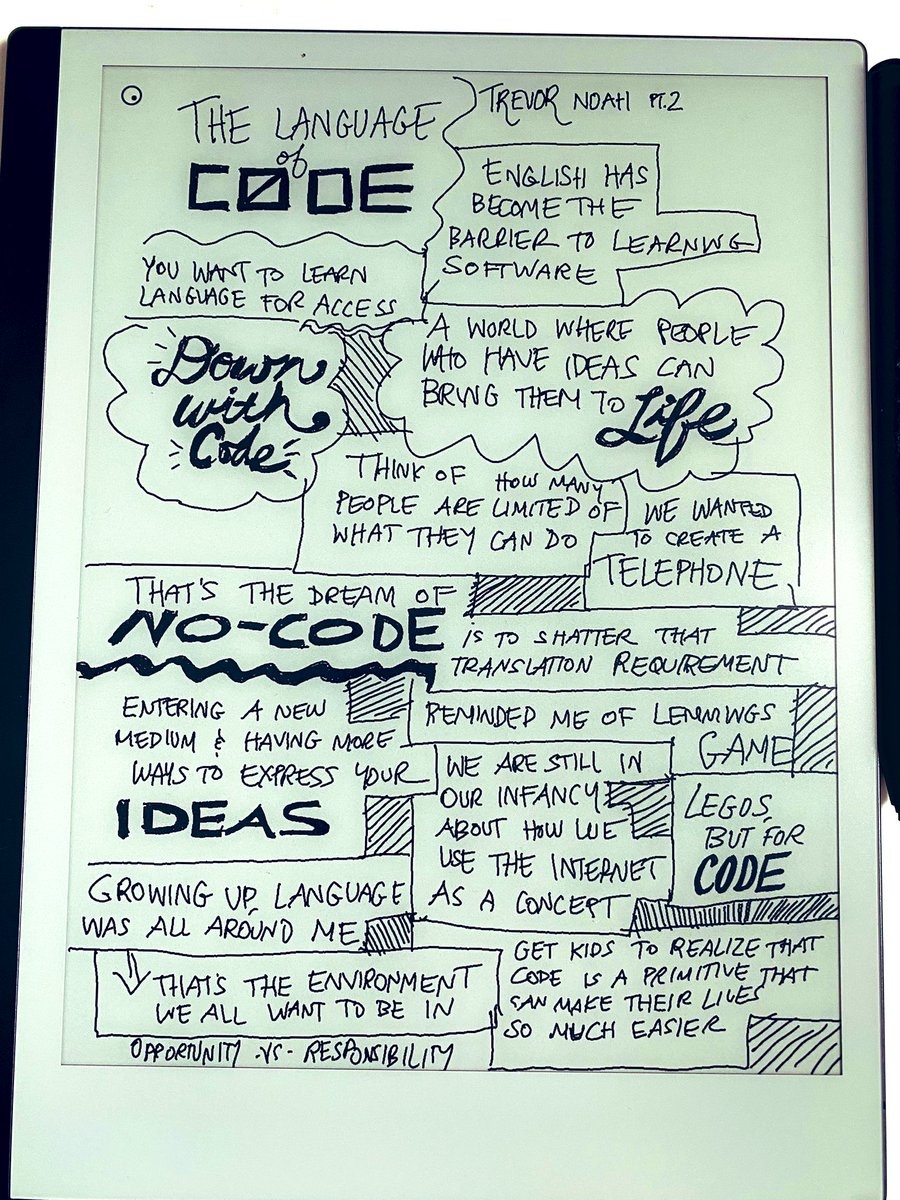 THE LANGUAGE
of
CODE
TREVOR NOAH PT.2
ENGLISH HAS
BECOME THE
BARRIER TO LEARNING
SOFTWARE
YOU WANT TO LEARN
LANGUAGE FOR ACCESS
Down
with
Code
A WORLD WHERE PEOPLE
WHO HAVE IDEAS CAN
BRING THEM TO
Life
THINK OF HOW MANY
PEOPLE ARE LIMITED OF
WHAT THEY CAN DO
WE WANTED
TO CREATE A
TELEPHONE
THAT'S THE DREAM OF
NO-CODE
IS TO SHATTER THAT
TRANSLATION REQUIREMENT
ENTERING A NEW
MEDIUM & HAVING MORE
WAYS TO EXPRESS YOUR
IDEAS
REMINDED ME OF LEMMINGS
GAME
WE ARE STILL IN
OUR INFANCY
ABOUT HOW WE
USE THE INTERNET
AS A CONCEPT
LEGOS,
BUT FOR
CODE
GROWING UP, LANGUAGE
WAS ALL AROUND ME
THAT'S THE ENVIRONMENT
WE ALL WANT TO BE IN
GET KIDS TO REALIZE THAT
CODE IS A PRIMITIVE THAT
CAN MAKE THEIR LIVES
SO MUCH EASIER
OPPORTUNITY -VS- RESPONSIBILITY